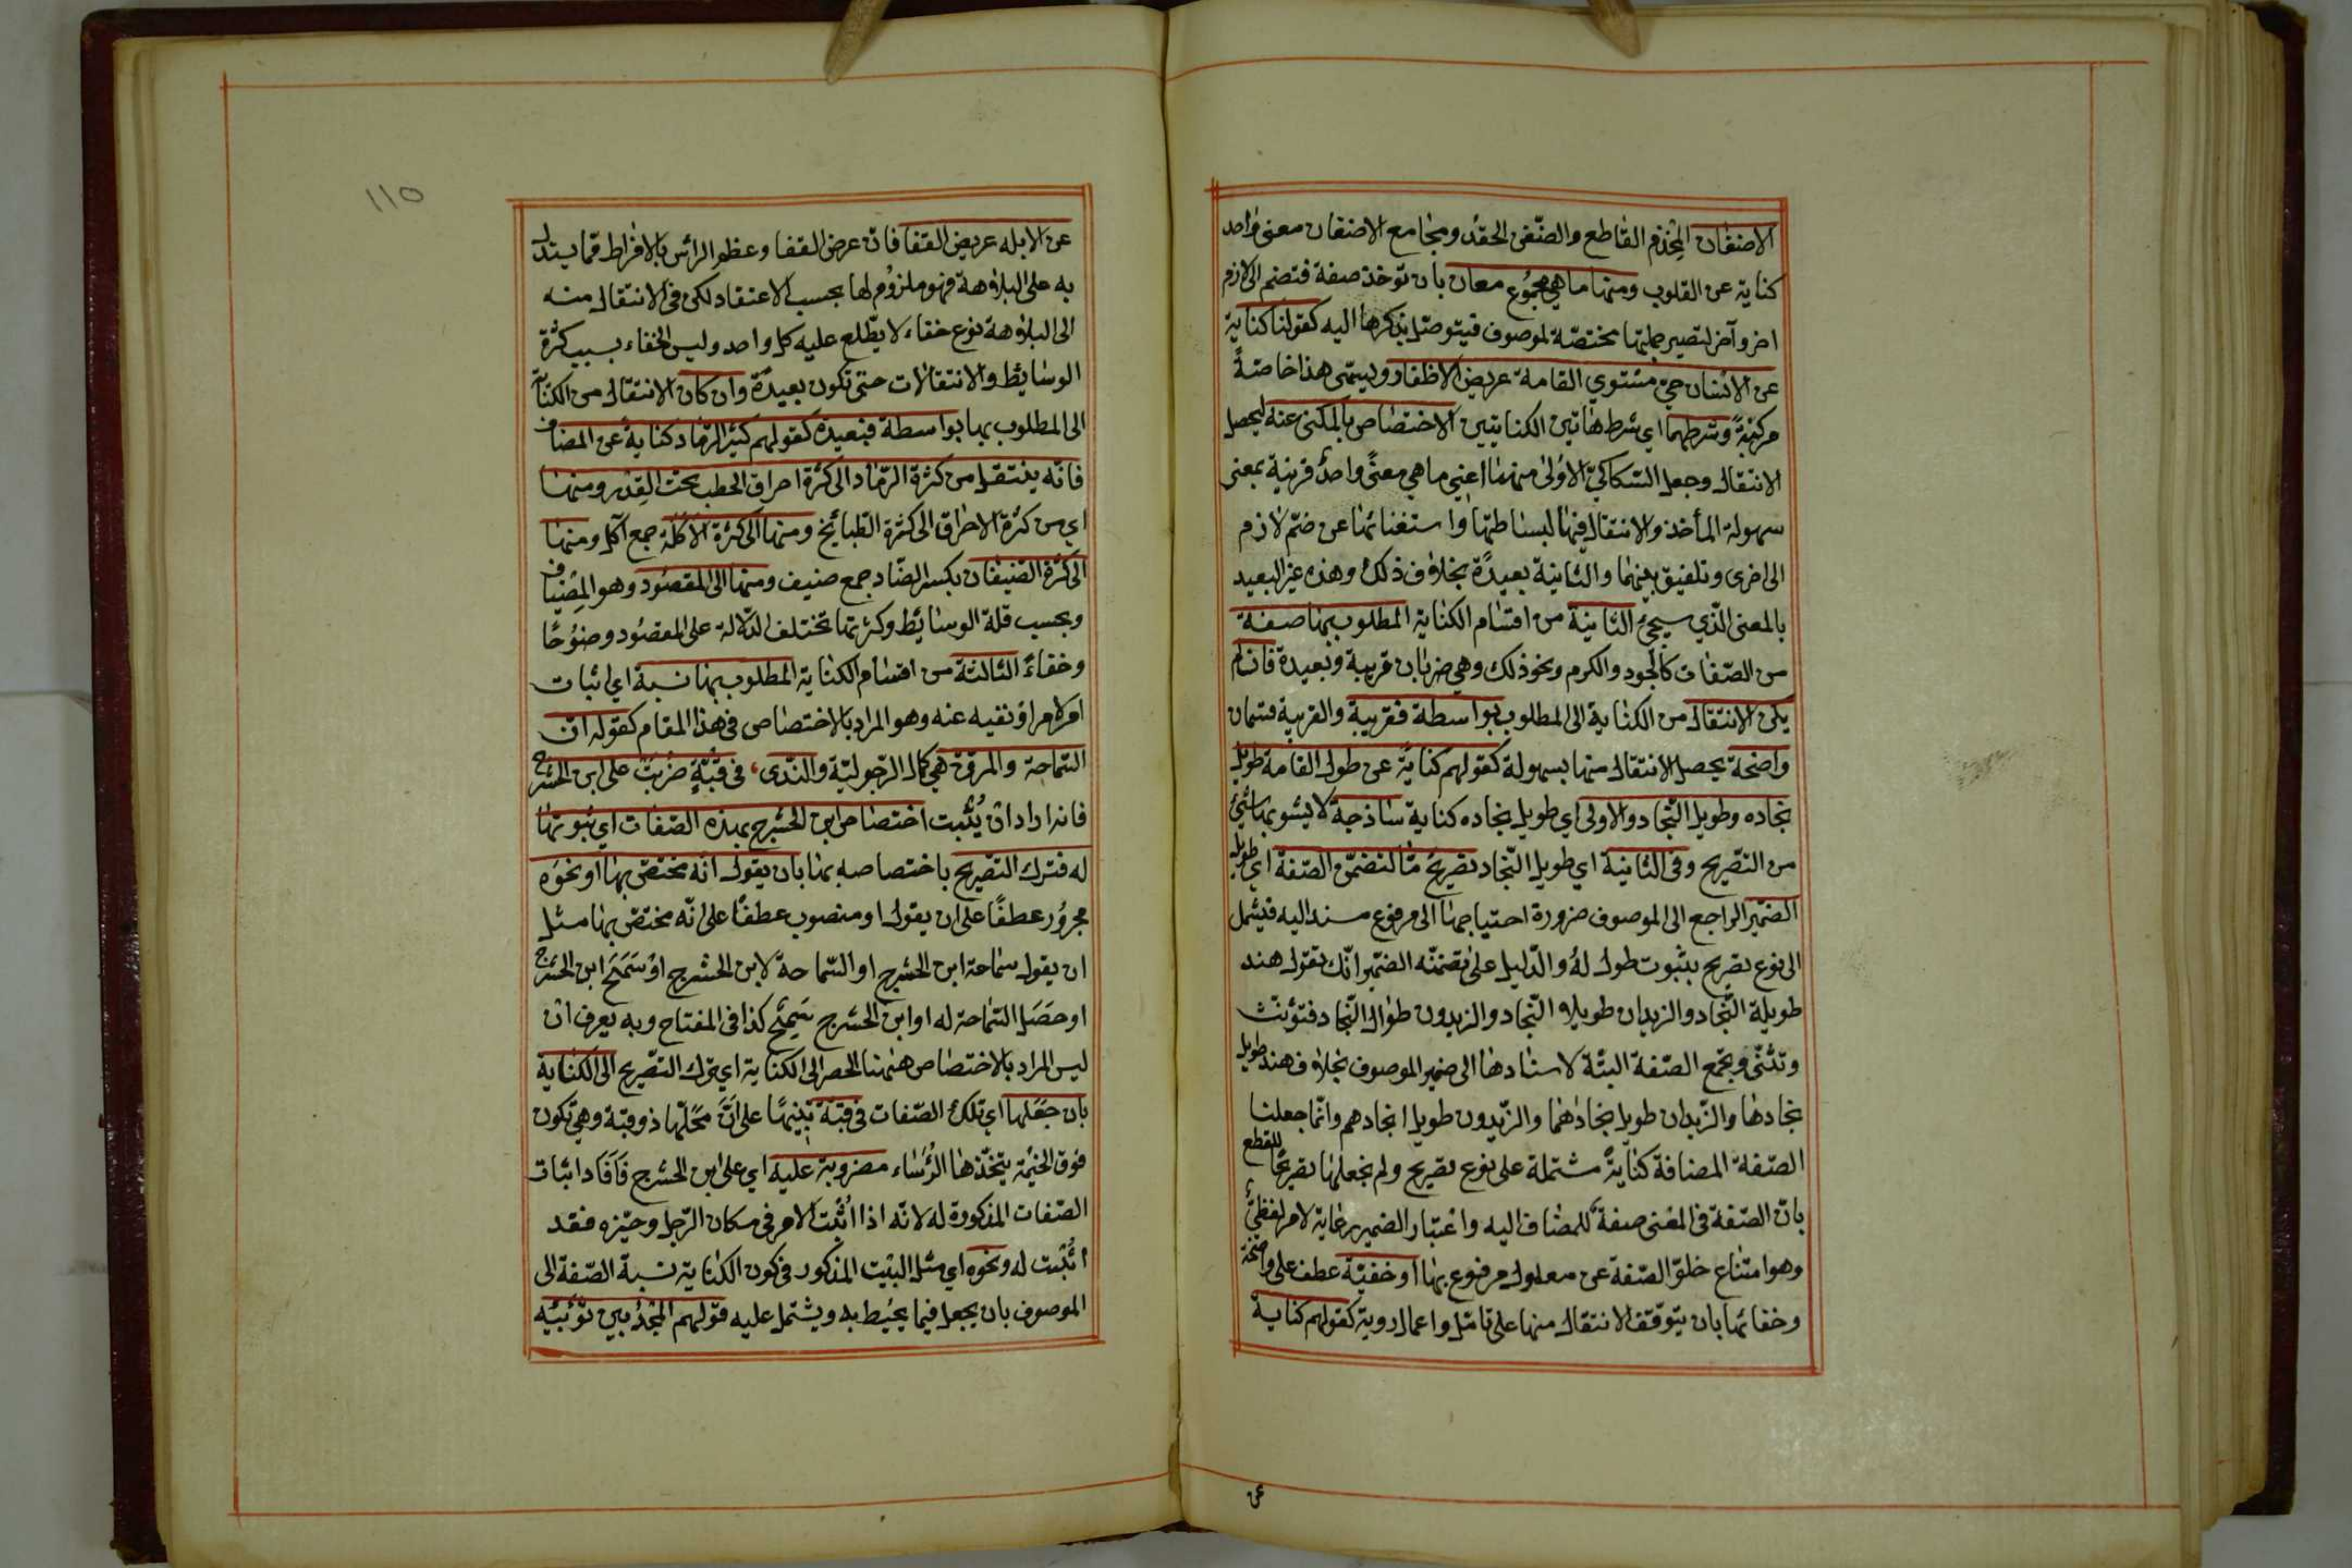 الاضغان المخذم القاطع والضغن الحقد ومجامع الاضغان معنى واحد
كناية عن القلوب ومنها ما هي مجموع معان بان توخذ صفة فتضم الى لازم
اخر وآخر لتصير جملتها مختصة لموصوف فيتوصل بذكرها اليه كقولنا كناية
عن الانسان حي مستوي القامة عريض الاظفار ويسمى هذا خاصة
مركبة وشرطهما اي شرط هاتين الكنايتين الاختصاص بالمكنى عنه ليحصل
الانتقال وجعل السكاكي الاولى منهما اعني ما هي معنى واحد قريبة بمعنى
سهولة المأخذ والانتقال فيها لبساطتها واستغنائها عن ضم لازم
الى اخرى وتلفيق بينهما والثانية بعيدة بخلاف ذلك وهذه غير البعيد
بالمعنى الذي سيجئ الثانية من اقسام الكناية المطلوب بها صفة
من الصفات كالجود والكرم ونحو ذلك وهي ضربان قريبة وبعيدة فان لم
يكن الانتقال من الكناية الى المطلوب بواسطة فقريبة والقريبة قسمان
واضحة يحصل الانتقال منها بسهولة كقولهم كناية عن طول القامة طويل
نجاده وطويل النجاد والاولى اي طويل نجاده كناية ساذجة لا يشوبها شئ
من التصريح وفى الثانية اي طويل النجاد تصريح ما لتضمن الصفة اي طويل
الضمير الراجع الى الموصوف ضرورة احتياجها الى مرفوع مسند اليه فيشمل
الى نوع تصريح بثبوت طول له والدليل على تضمنه الضمير انك تقول هند
طويلة النجاد والزيدان طويلا النجاد والزيدون طوال النجاد فتؤنث
وتثنى وتجمع الصفة البتة لاسنادها الى ضمير الموصوف بخلاف هند طويل
نجادها والزيدان طويل نجادهما والزيدون طويل انجادهم وانما جعلنا
الصفة المضافة كناية مشتملة على نوع تصريح ولم نجعلها تصريحا للقطع
بان الصفة فى المعنى صفة للمضاف اليه واعتبار الضمير رعاية لامر لفظي
وهو امتناع خلو الصفة عن معلول مرفوع بها او خفية عطف على واضحة
وخفائها بان يتوقف الانتقال منها على تامل واعمال روية كقولهم كناية
عن
١١٥
عن الابله عريض القفا فان عرض القفا وعظم الراس بالافراط مما يستدل
به على البلاهة فهو ملزوم لها بحسب الاعتقاد لكن فى الانتقال منه
الى البلاهة نوع خفاء لا يطلع عليه كل واحد وليس الخفاء بسبب كثرة
الوسائط والانتقالات حتى تكون بعيدة وان كان الانتقال من الكناية
الى المطلوب بها بواسطة فبعيدة كقولهم كثير الرماد كناية عن المضاف
فانه ينتقل من كثرة الرماد الى كثرة احراق الحطب تحت القدر ومنها
اي من كثرة الاحراق الى كثرة الطبائخ ومنها الى كثرة الاكلة جمع آكل ومنها
الى كثرة الضيفان بكسر الضاد جمع ضيف ومنها الى المقصود وهو المضياف
وبحسب قلة الوسائط وكثرتها تختلف الدلالة على المقصود وضوحا
وخفاء الثالثة من اقسام الكناية المطلوب بها نسبة اي اثبات
امر لامر او نفيه عنه وهو المراد بالاختصاص فى هذا المقام كقوله ان
السماحة والمروة هي كمال الرجولية والندى، فى قبة ضربت على ابن الحشرج
فانه اراد ان يثبت اختصاص ابن الحشرج بهذه الصفات اي ثبوتها
له فترك التصريح باختصاصه بها بان يقول انه مختص بها او نحوه
مجرور عطفا على ان يقول او منصوب عطفا على انه مختص بها مثل
ان يقول سماحة ابن الحشرج او السماحة لابن الحشرج او سمح ابن الحشرج
او حصل السماحة له او ابن الحشرج سمح كذا فى المفتاح وبه يعرف ان
ليس المراد بالاختصاص ههنا الحصر الى الكناية اي ترك التصريح الى الكناية
بان جعلها اي تلك الصفات فى قبة تنبيها على ان محلها ذو قبة وهي تكون
فوق الخيمة يتخذها الرؤساء مضروبة عليه اي على ابن الحشرج فافاد اثبات
الصفات المذكورة له لانه اذا اثبت الامر فى مكان الرجل وحيزه فقد
اثبت له ونحوه اي مثل البيت المذكور فى كون الكناية نسبة الصفة الى
الموصوف بان يجعل فيما يحيط به ويشتمل عليه قولهم المجد بين ثوبيه